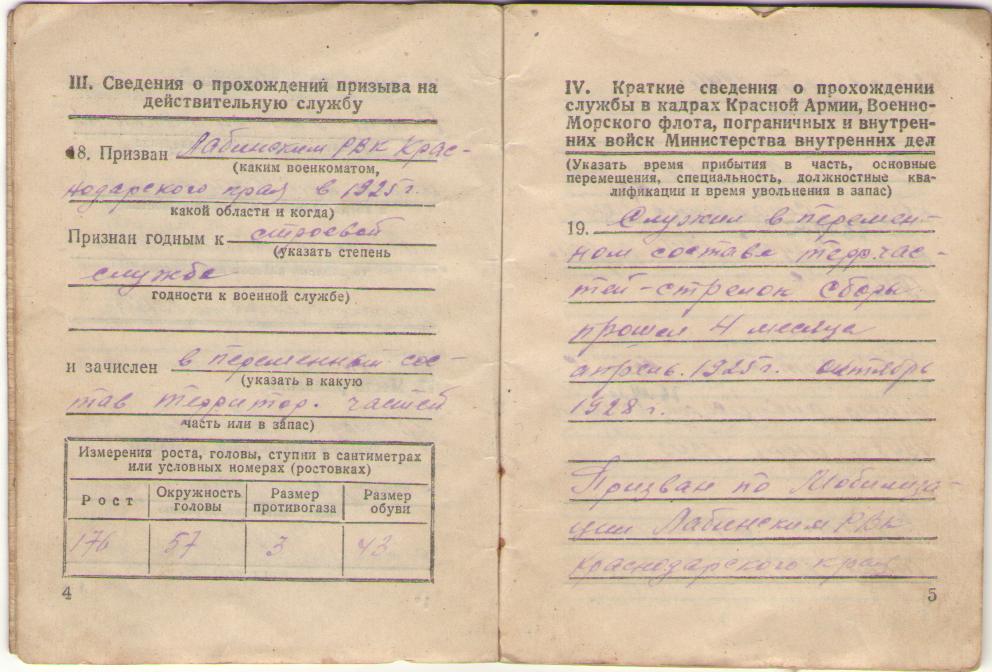 III. Сведения о прохождений призыва на
действительную службу
18. Призван Лабинским РВК Крас-
(каким военкоматом,
нодарского края в 1925 г.
какой области и когда)
Признан годным к строевой
(указать степень
службе
годности к военной службе)
и зачислен в переменный сос-
(указать в какую
тав территор. частей
часть или в запас)
Измерения роста, головы, ступни в сантиметрах
или условных номерах (ростовках)
Рост
Окружность
головы
Размер
противогаза
Размер
обуви
176 57 3 43
4
IV. Краткие сведения о прохождении
службы в кадрах Красной Армии, Военно-
Морского флота, пограничных и внутрен-
них войск Министерства внутренних дел
(Указать время прибытия в часть, основные
перемещения, специальность, должностные ква-
лификации и время увольнения в запас)
19. Служил в перемен-
ном составе террчас-
тей-стрелок Сборы
прошел 4 месяца
апрель. 1925 г. октябрь
1928 г.
Призван по Мобилиза-
ции Лабинским РВК
Краснодарского края
5